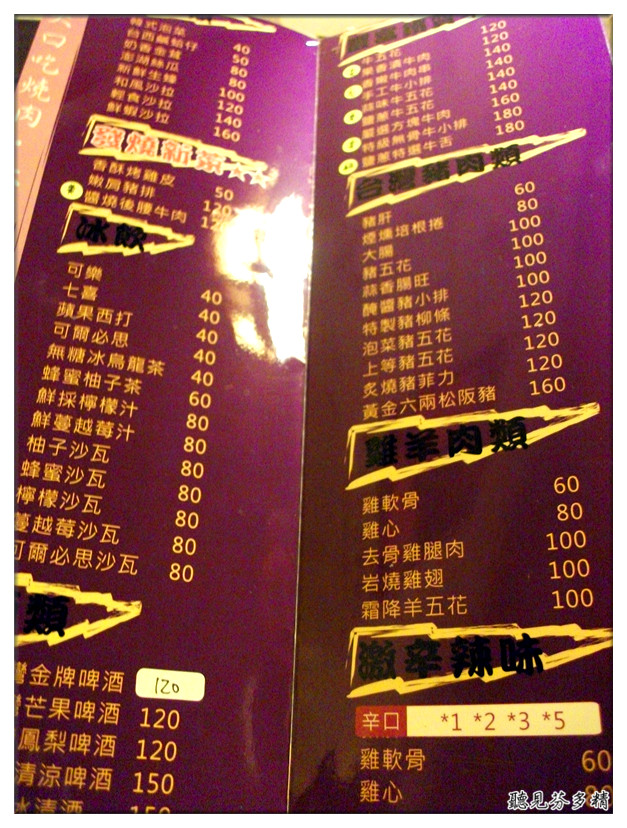 大口吃燒肉
韓式泡菜 40
台西鹹蛤仔 50
奶香金茸 80
澎湖絲瓜 80
新鮮生蠔 100
和風沙拉 120
輕食沙拉 140
鮮蝦沙拉 160
發燒新菜
香酥烤雞皮 50
嫩肩豬排 120
醬燒後腰牛肉
冰飲
可樂 40
七喜 40
蘋果西打 40
可爾必思 40
無糖冰烏龍茶 40
蜂蜜柚子茶 60
鮮採檸檬汁 80
鮮蔓越莓汁 80
柚子沙瓦 80
蜂蜜沙瓦 80
檸檬沙瓦 80
蔓越莓沙瓦 80
可爾必思沙瓦 80
類
金牌啤酒 120
芒果啤酒 120
鳳梨啤酒 120
清涼啤酒 150
冰清酒 150
牛五花 120
果香漬牛肉 120
軟嫩牛肉串 140
手工牛小排 140
蒜味牛五花 140
鹽蔥牛五花 160
嚴選方塊牛肉 180
特級無骨牛小排 180
鹽蔥特選牛舌
台灣豬肉類
豬肝 60
煙燻培根捲 80
大腸 100
豬五花 100
蒜香腸旺 100
醃醬豬小排 100
特製豬柳條 120
泡菜豬五花 120
上等豬五花 120
炙燒豬菲力 120
黃金六兩松阪豬 160
雞羊肉類
雞軟骨 60
雞心 80
去骨雞腿肉 100
岩燒雞翅 100
霜降羊五花 100
激辛辣味
辛口 *1 *2 *3 *5
雞軟骨 60
雞心 80
聽見芬多精